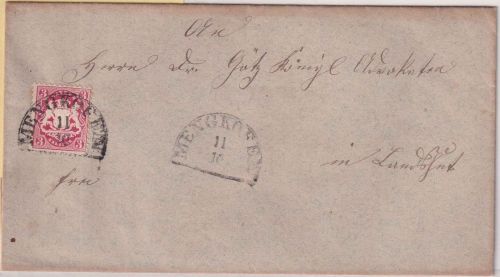 An
Herrn Dr. Götz Königl Advokaten
3 3
MENGKOFEN
11
10
3 3
MENGKOFEN
11
10
in Landshut
frei